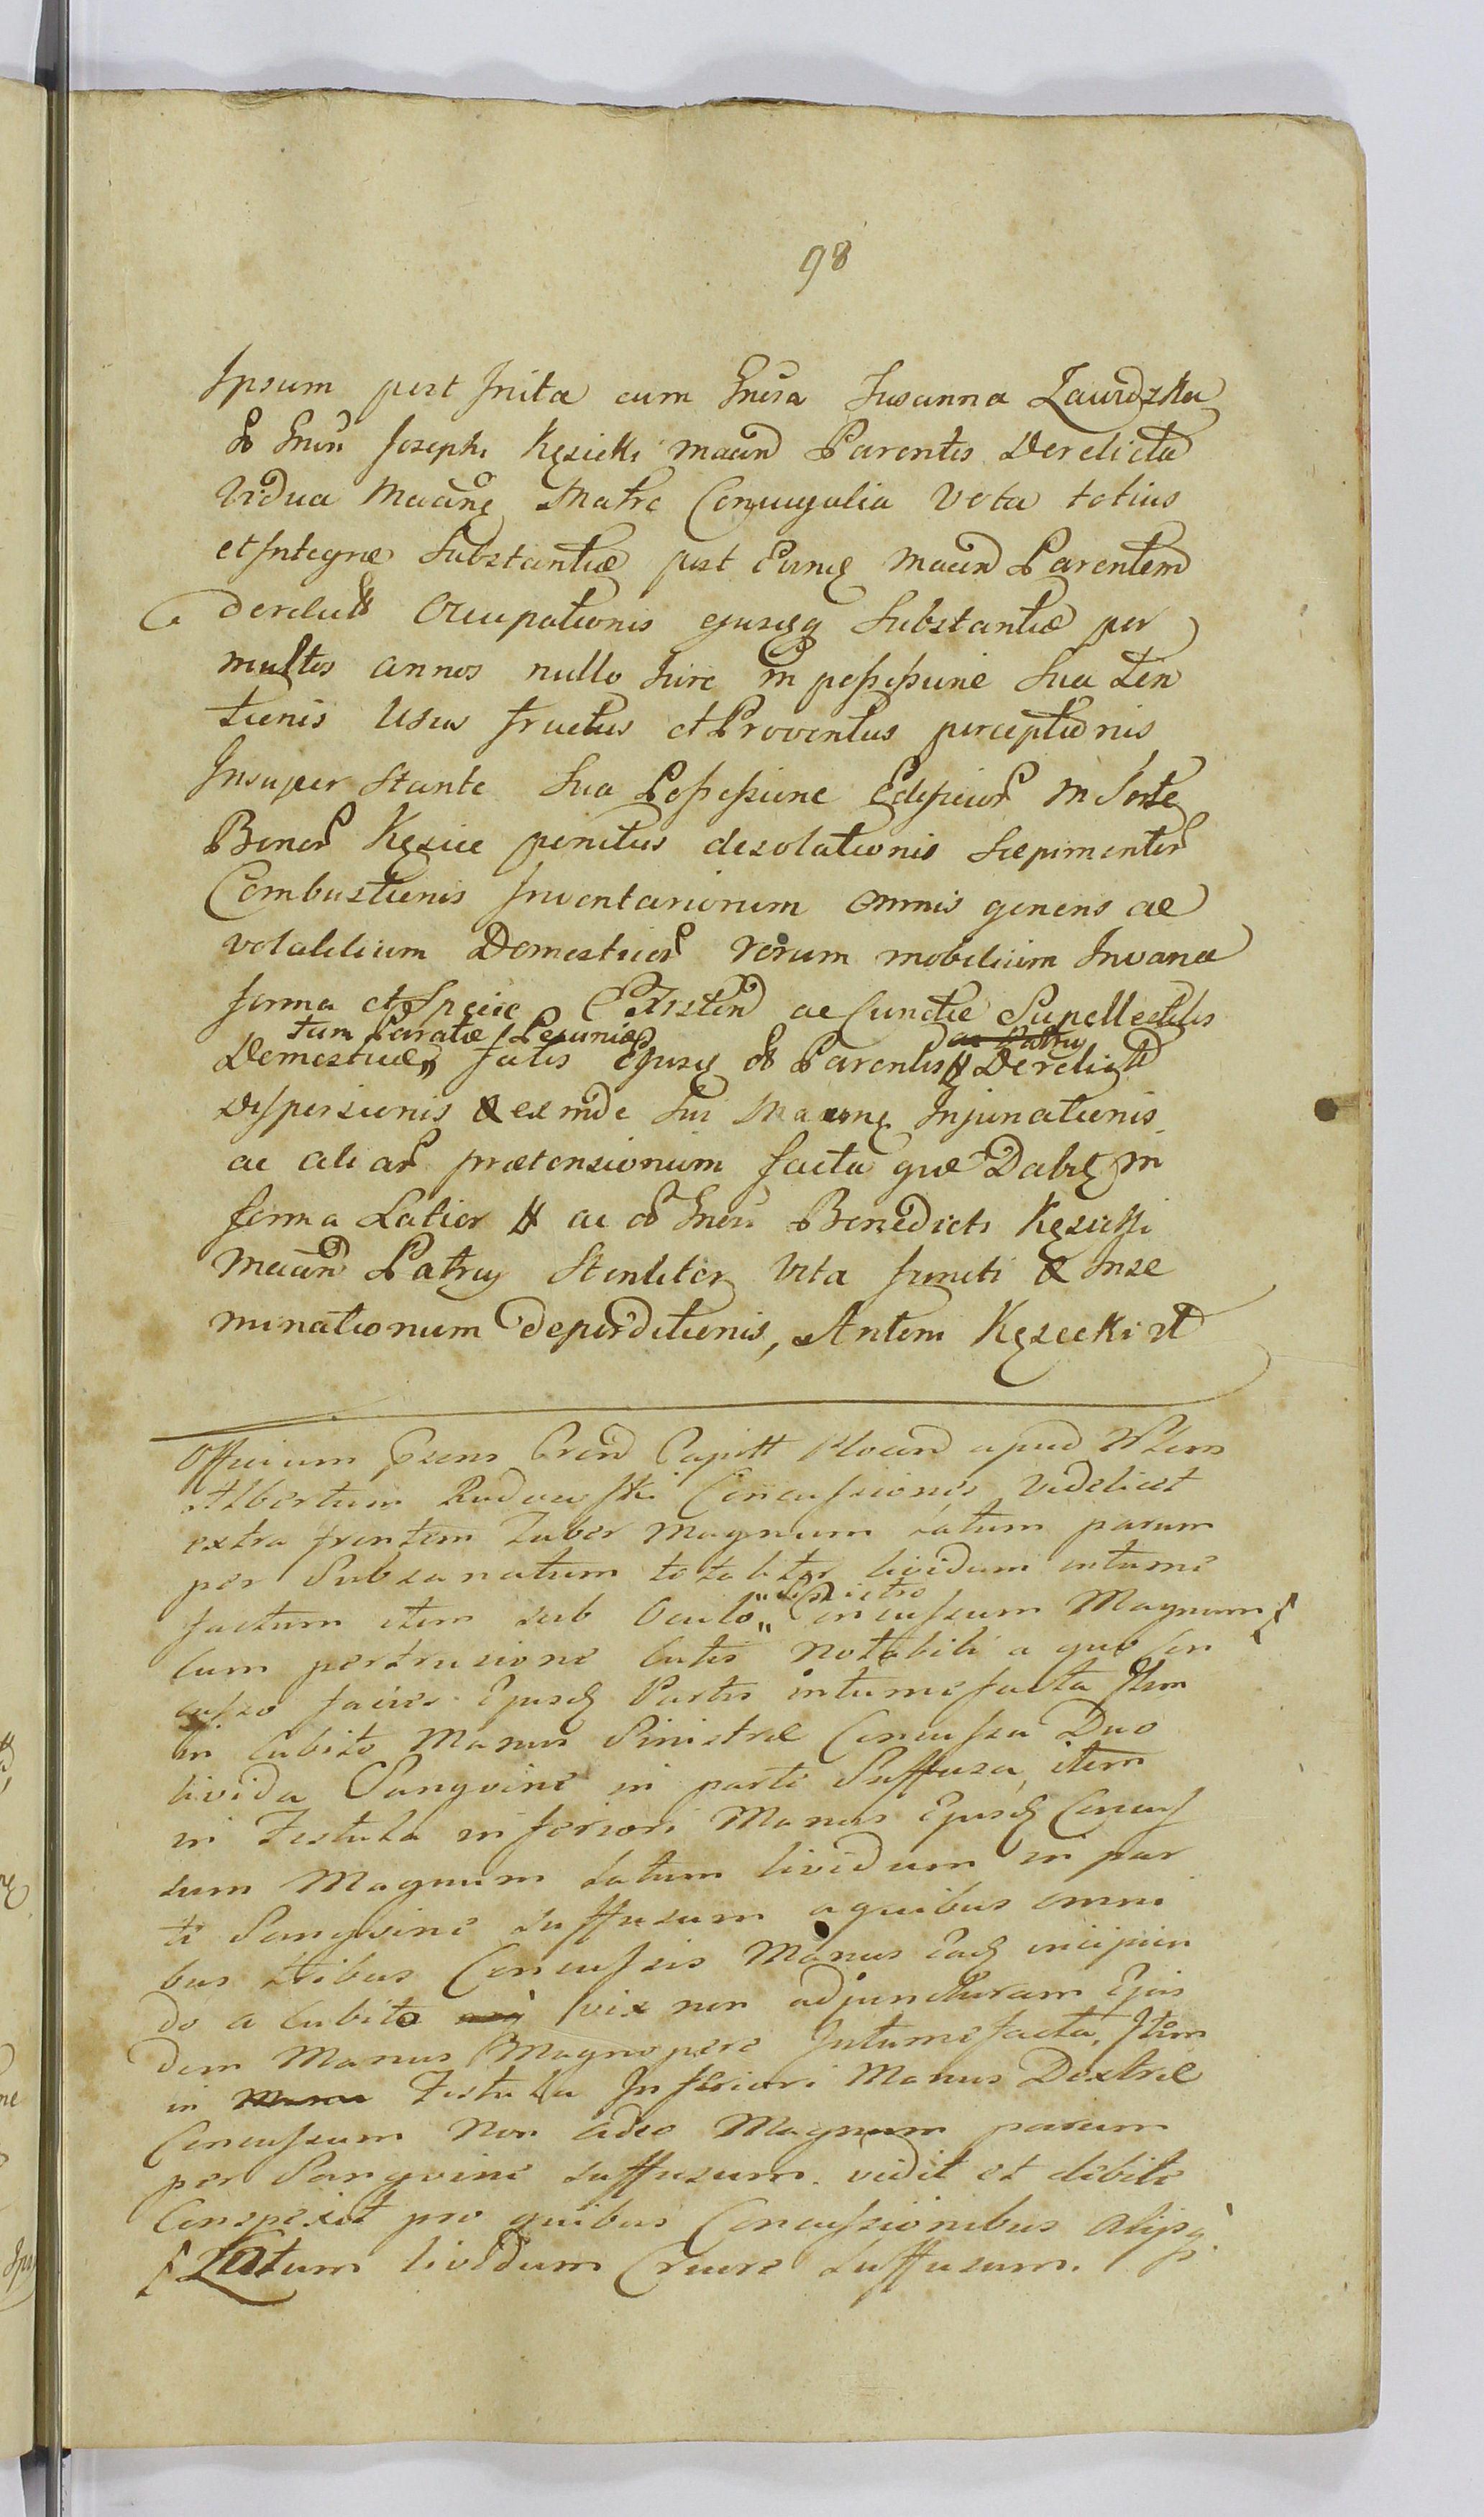 98
Ipsum post Inita cum Gnosa Susanna Zawidzka
Gnosi Josephi Kęsicki Maand Parentis Derelicta
Vidua Maaneq Matre Conjugalia Vota totius
et Integræ Substantiæ post Eundq Maand Parentem
derelict Occupationis ejusdq Substantiæ per
multos annos nullo Jure in possessione Sua Ten
tionis Usus fructus et Proventus perceptionis
Insuper Stante Sua Possessione Edificior in Sorte
Bonor Kęsice penitus desolationis Sæpimentor
Combustionis Inventariorum omnis generis ac
volatilium Domesticor rerum mobilium In varia
forma et Specie Existen ac Cunctæ Supellectilis
tum Paratæ Pecuniæ ac Patrui
Domesticæ, fatis Ejusdq Parentis Derelict
Dispersionis & exinde Sui Maaneq Injuriationis
ac aliar prætensionum facta quæ Dabit in
forma Latior ac Gnosi Benedicti Kęsicki
Maand Patrui Steriliter Vita functi & Inse
minationum deperditionis, Antoni Kęsicki
Officium Præns Cren Capitt Plocen apud
Albertum Rudowski Concussiones videlicet
extra frontem Tuber magnum Latum parum
per Subsanatum totaliter lividum intume
Sinistro
factum item sub Oculo " Concussum Magnum
Cum pertrusione Cutis Notabili a quo Con
cusso facies Ejusd Partis intumefacta Item
in Cubito Manus Sinistræ Concussa Duo
livida Sangvine in parte Suffusa, item
in Testula inferiori Manus Ejusd Concus
sum Magnum Latum lividum in par
te Sangvine suffusum a quibus omni
bus tribus Concussis Manus Ead incipien
do a Cubito vix non ad juncturam Ejus
dem Manus Magnopere Intumefacta, Item
in Manu Testula Inferiori Manus Dextræ
Concussum Non adeo Magnum parum
per Sangvine suffusum. vidit et debite
Conspexit pro quibus Concussionibus aliisq
Latum lividum Cruore Suffusum.